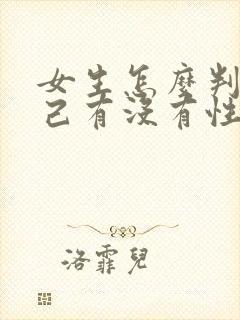 女生怎麼判
己有沒有性
洛霏兒